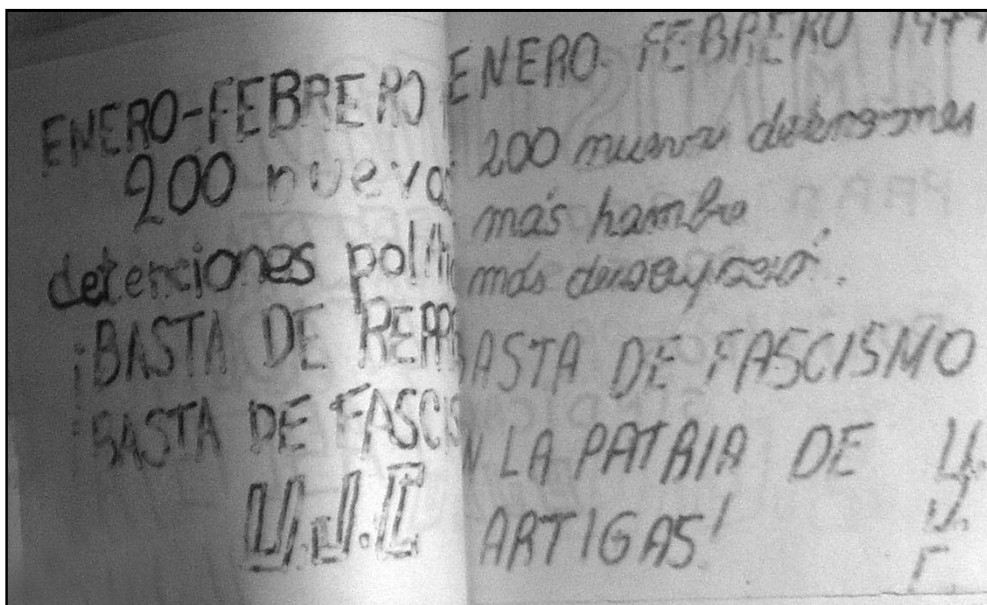 ENERO-FEBRERO
200 nuevas
detenciones polít
¡BASTA DE REPR
¡BASTA DE FASCIS
U.J.C
ENERO-FEBRERO 1977
200 nuevas detenciones
más hambre
más desocupación.
BASTA DE FASCISMO
N LA PATRIA DE
ARTIGAS!
U.
J.
C